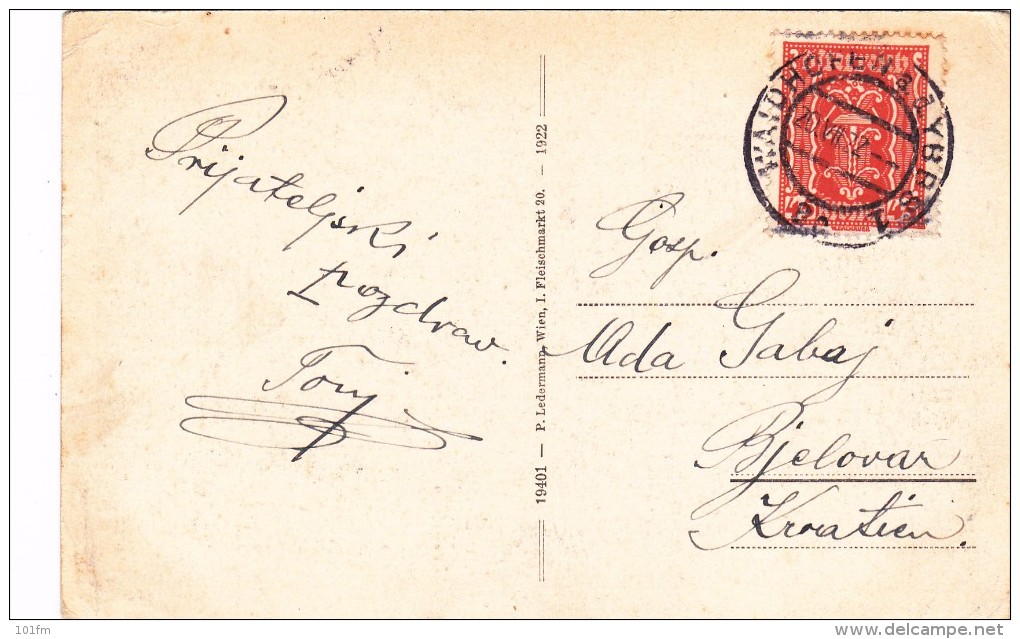 Prijateljski
pozdrav.
Tonij
19401 — P. Ledermann, Wien, I. Fleischmarkt 20. — 1922
WAIDHOFEN a d YBBS
20.VII.22
2a 1
Gosp.
Ada Gabaj
Bjelovar
Kroatien.
101fm
delcampe.net